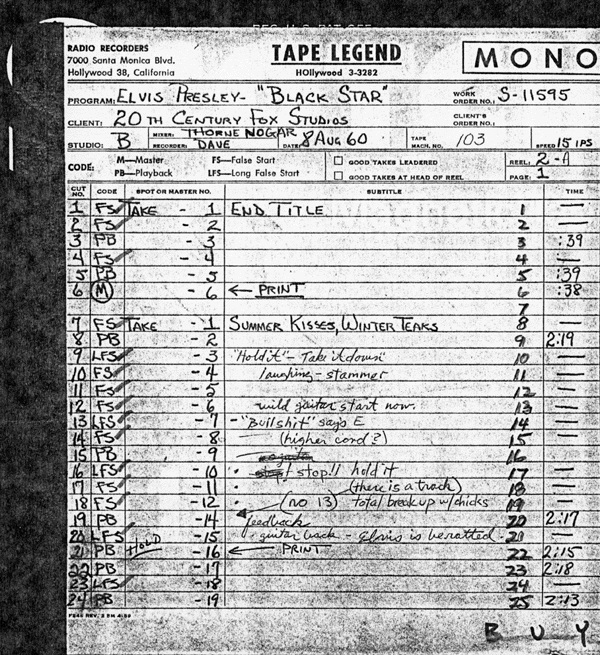 RADIO RECORDERS
7000 Santa Monica Blvd.
Hollywood 38, California
TAPE LEGEND
HOllywood 3-3282
MONO
PROGRAM: ELVIS PRESLEY - "BLACK STAR"
WORK ORDER NO.: S-11595
CLIENT: 20TH CENTURY FOX STUDIOS
CLIENT'S ORDER NO.:
STUDIO: B MIXER: THORNE NOGAR RECORDER: DAVE DATE: 8 AUG 60 TAPE MACH. NO. 103 SPEED 15 IPS
CODE: M—Master FS—False Start
PB—Playback LFS—Long False Start
GOOD TAKES LEADERED
GOOD TAKES AT HEAD OF REEL
REEL: 2-A
PAGE: 1
CUT NO. CODE SPOT OR MASTER NO. SUBTITLE TIME
1 FS TAKE - 1 END TITLE 1 —
2 FS - 2 2 —
3 PB - 3 3 :39
4 FS - 4 4 —
5 PB - 5 5 :39
6 M - 6 ← PRINT 6 :38
7
7 FS TAKE - 1 SUMMER KISSES, WINTER TEARS 8 —
8 PB - 2 9 2:19
9 LFS - 3 "Hold it" - Take it down" 10 —
10 FS - 4 laughing - stammer 11 —
11 FS - 5 12 —
12 FS - 6 wild guitar start now. 13 —
13 LFS - 7 - "Bullshit" says E 14 —
14 FS - 8 (higher cord?) 15 —
15 PB - 9 16
16 LFS - 10 stop!! hold it 17 —
17 FS - 11 (there is a track) 18 —
18 FS - 12 (no 13) total breakup w/chicks 19 —
19 PB - 14 feedback 20 2:17
20 LFS - 15 guitar back - Elvis is beratted - 21 —
21 PB HOLD - 16 ← PRINT 22 2:15
22 PB - 17 23 2:18
23 LFS - 18 24 —
24 PB - 19 25 2:13
BUY